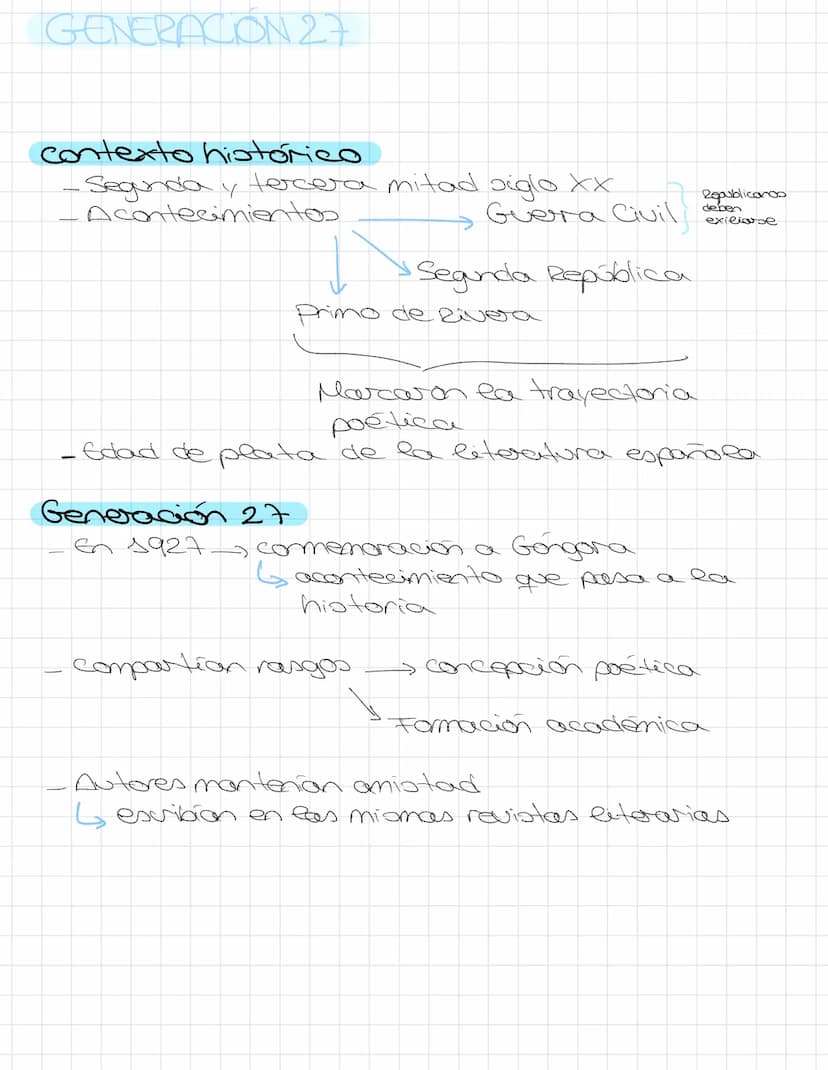 GENERACIÓN 27
Contexto histórico
- Segunda y tercera mitad siglo XX
- Acontecimientos → Guerra Civil
Republicanos
deben
exiliarse
Segunda República
Primo de Rivera
Marcaron la trayectoria
poética
- Edad de plata de la literatura española
Generación 27
- En 1927 → conmemoración a Góngora
↳ acontecimiento que pasa a la
historia
- Compartían rasgos → concepción poética
Formación académica
- Autores mantenían amistad
↳ escribían en las mismas revistas literarias